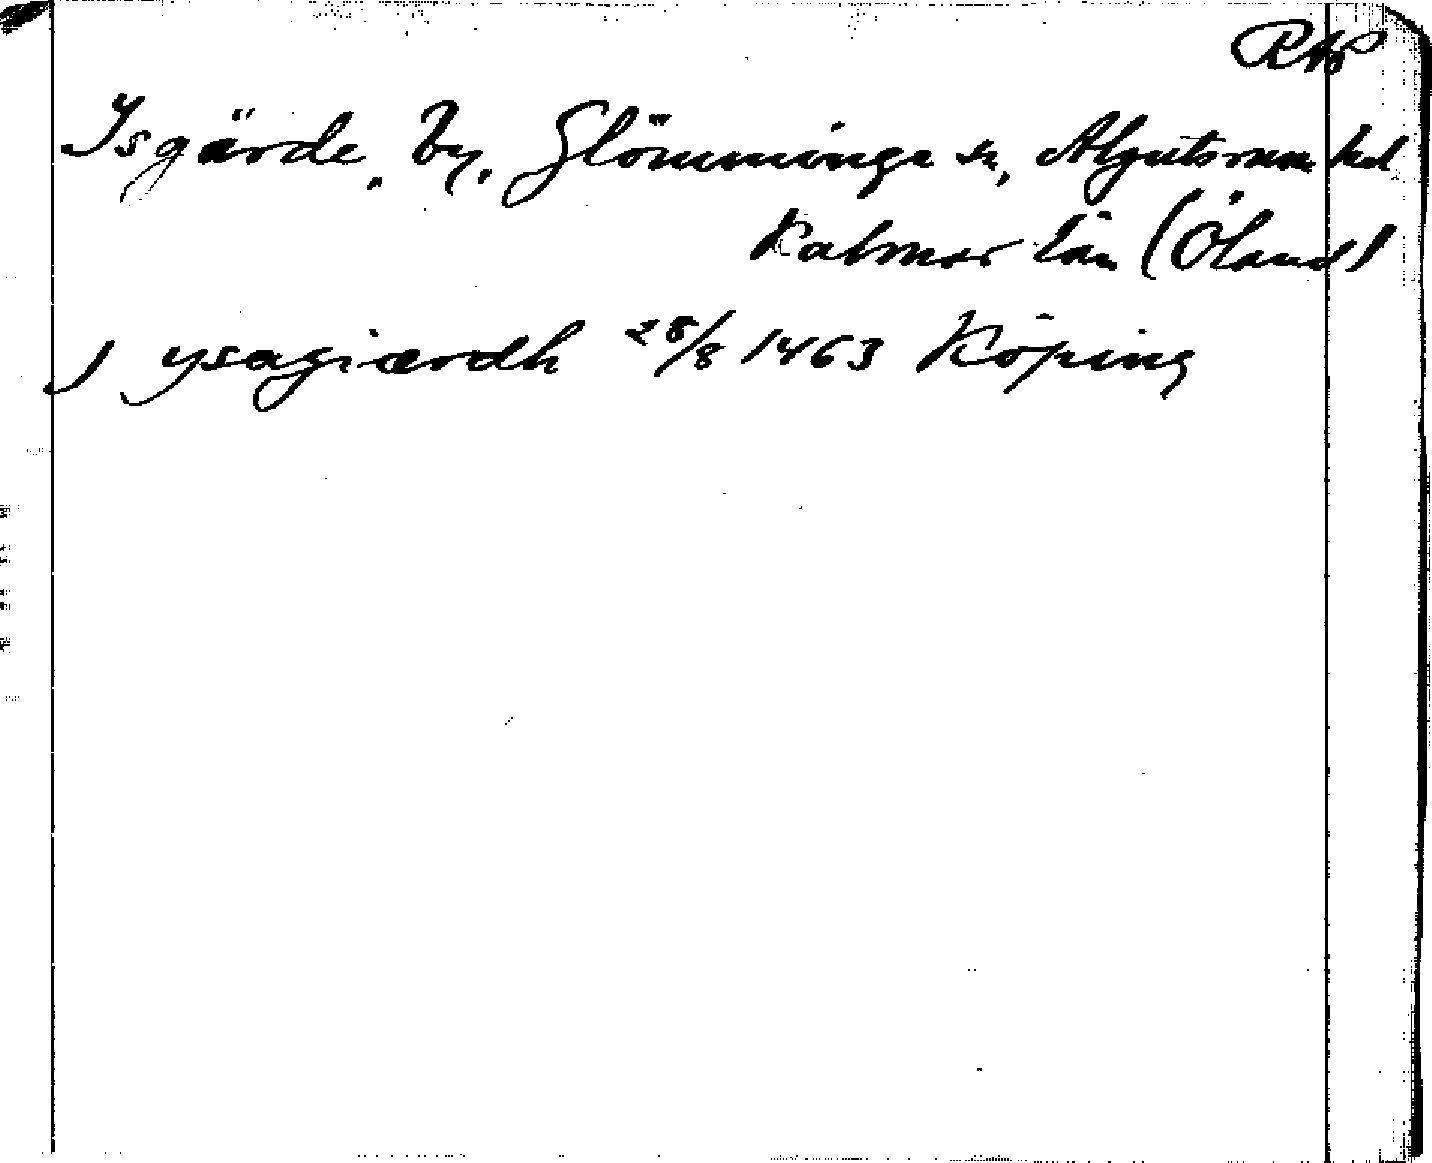 RAP
Isgärde, by, Glömminge sn, Algutsrum hd
Kalmar län (Öland)
J ysagiærdh 28/8 1463 Köping